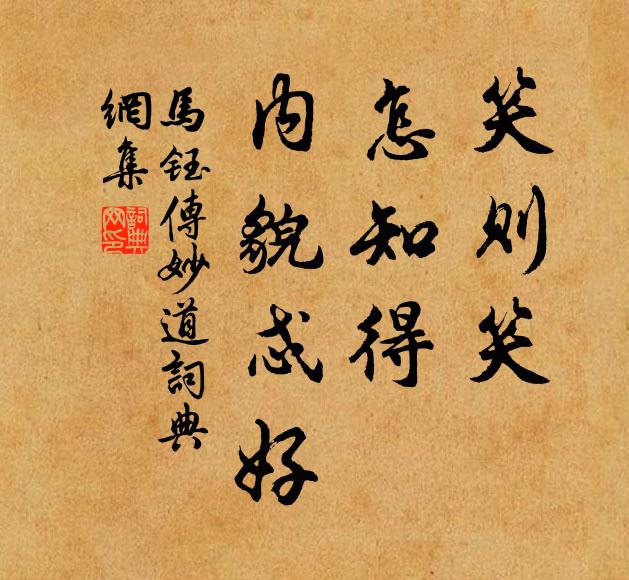 笑則笑
怎知得
内貌忒好
馬鈺傳妙道詞典
網集
詞典網印